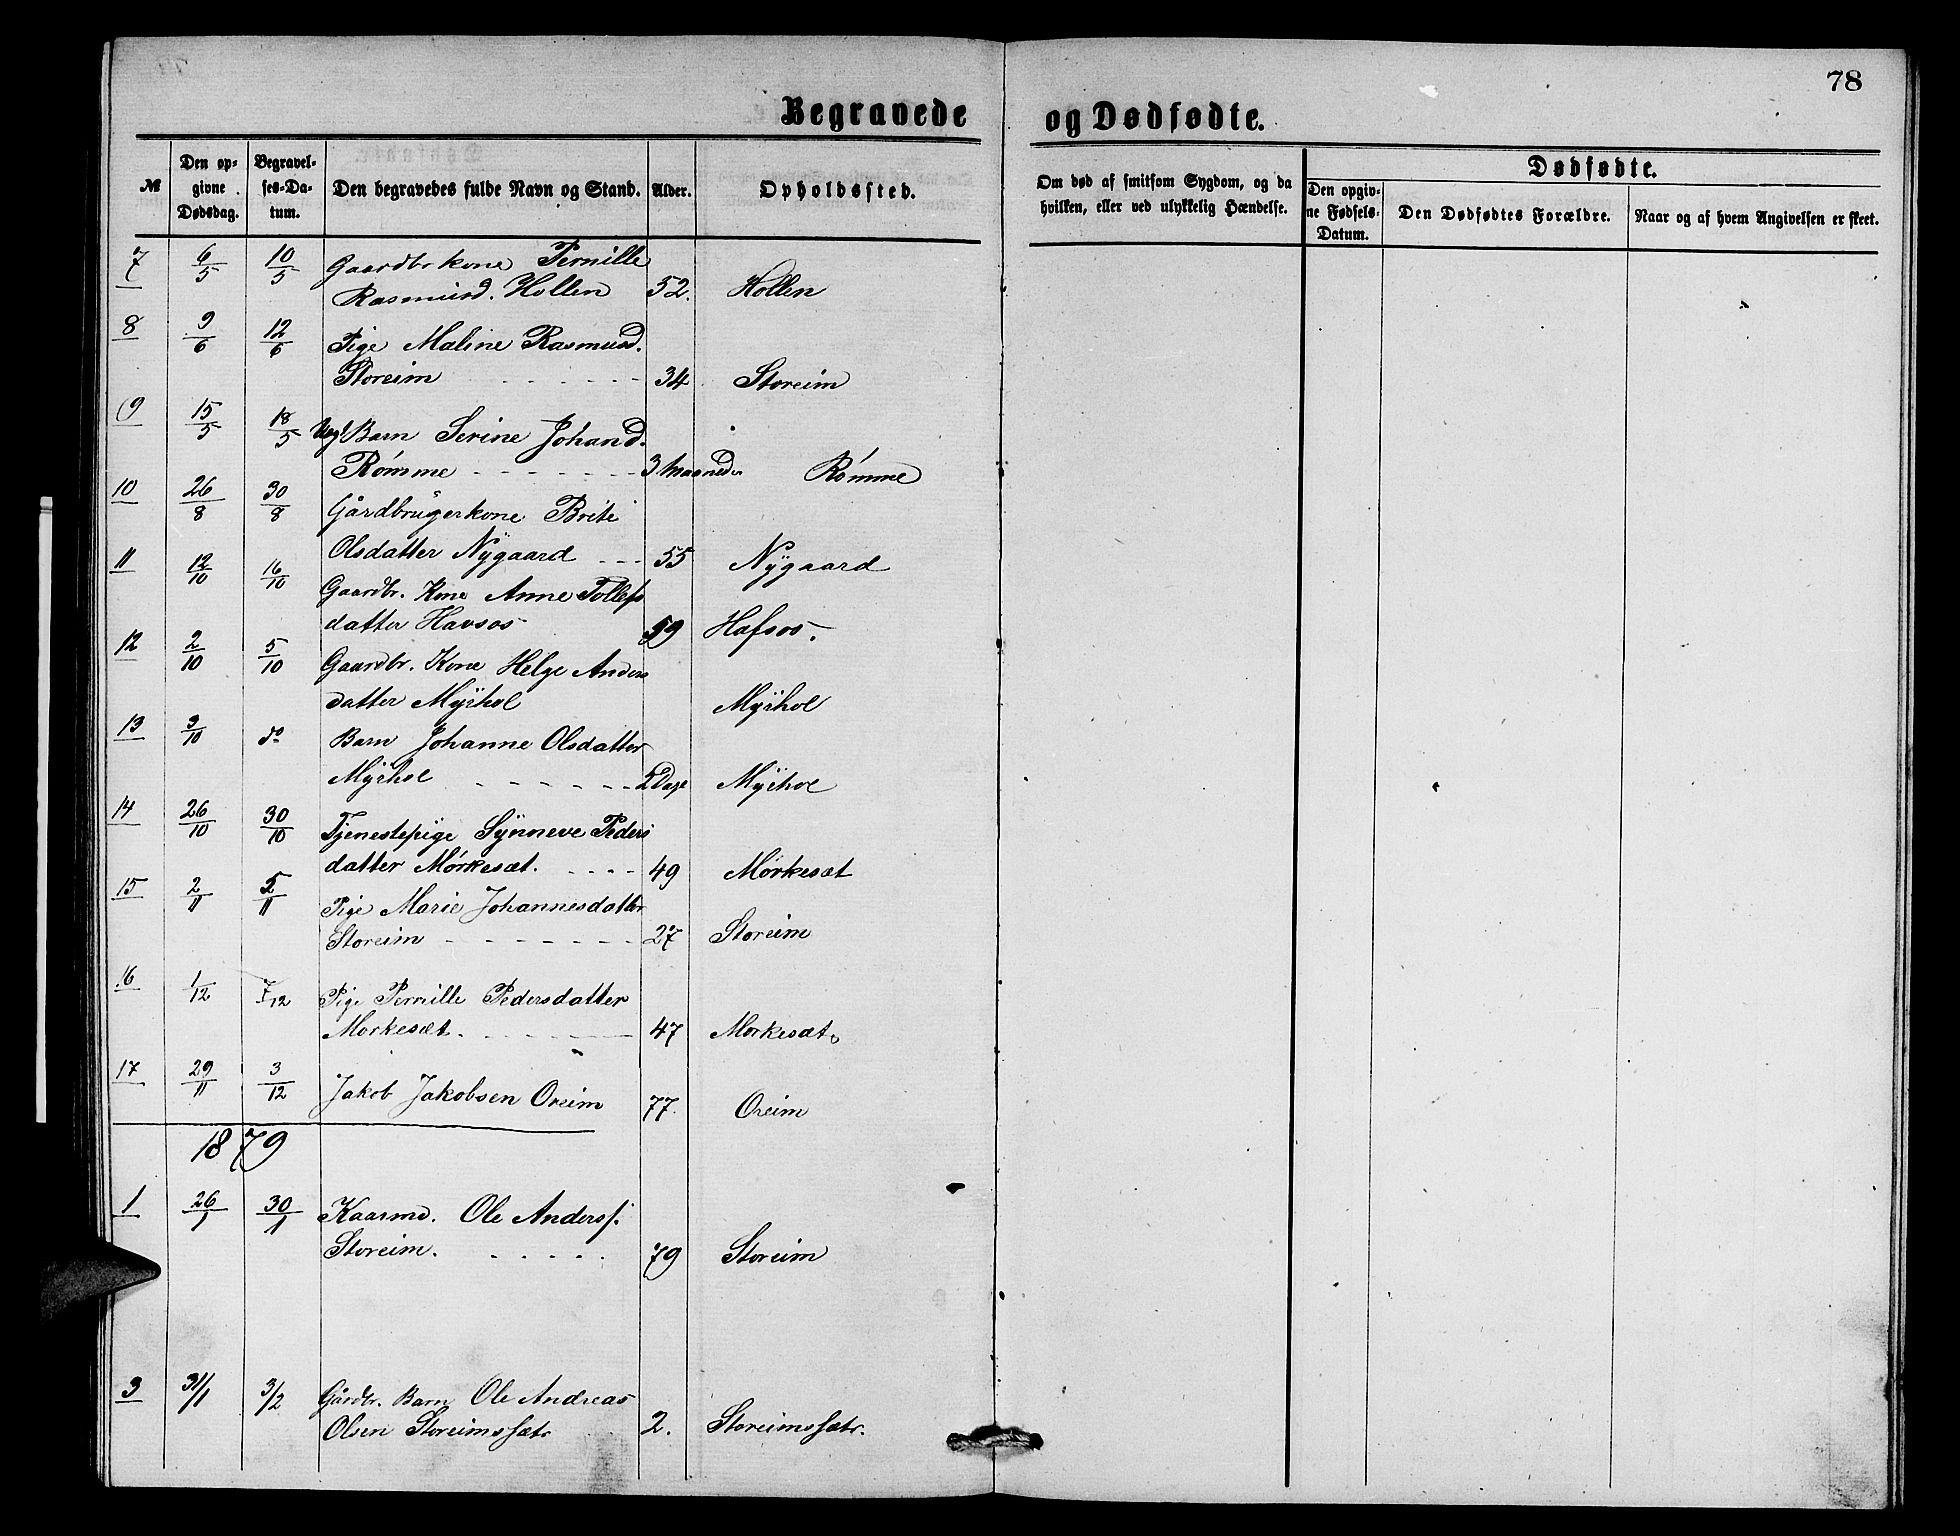 78
Begravede og Dødfødte.
№
Den opgivne Dødsdag.
Begravelses-Datum.
Den begravedes fulde Navn og Stand.
Alder.
Opholdssted.
Om død af smitsom Sygdom, og da hvilken, eller ved ulykkelig Hændelse.
Dødfødte.
Den opgivne Fødsels-Datum.
Den Dødfødtes Forældre.
Naar og af hvem Angivelsen er skeet.
7 6/5 10/5 Gaardbr kone Pernille
Rasmusd. Hollen 52. Hollen
8 9/6 12/6 Pige Maline Rasmusd.
Storeim 34 Storeim
9 15/5 18/5 Uægt Barn Serine Johansd.
Rømme 3 Maaneder Rømme
10 26/8 30/8 Gårdbrugerkone Brite
Olsdatter Nygaard 55 Nygaard
11 12/10 16/10 Gaardbr. Kone Anne Tollefs
datter Havsos 59 Hafsos.
12 2/10 5/10 Gaardbr. Kone Helge Anders
datter Myrhol Myrhol
13 3/10 do Barn Johanne Olsdatter
Myrhol 2 Dage Myrhol
14 26/10 30/10 Tjenestepige Synneve Peders
datter Mørkesæt. 49 Mørkesæt
15 2/11 5/11 Pige Marie Johannesdatter
Storeim 27 Storeim
16 1/12 7/12 Pige Pernille Pedersdatter
Morkesæt. 47 Morkesæt
17 29/11 3/12 Jakob Jakobsen Oreim 77. Oreim
1879
1 26/1 30/1 Kaarmd. Ole Anderss.
Storeim. 79 Storeim
3 31/1 3/2 Gårdbr. Barn Ole Andreas
Olsen Storeimssætr 2. Storeimssætr.